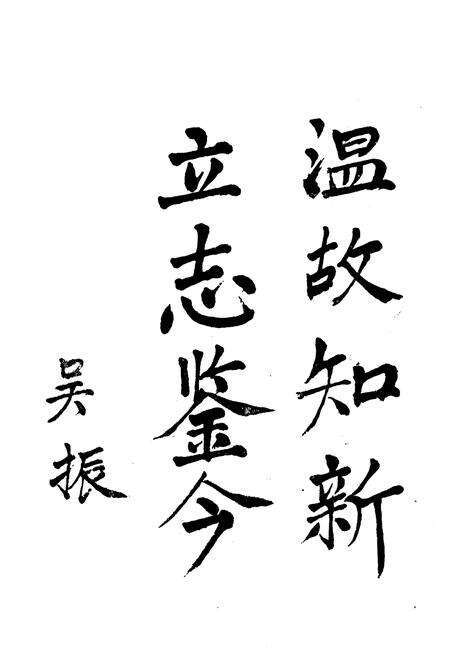 温故知新
立志鉴今
吴振